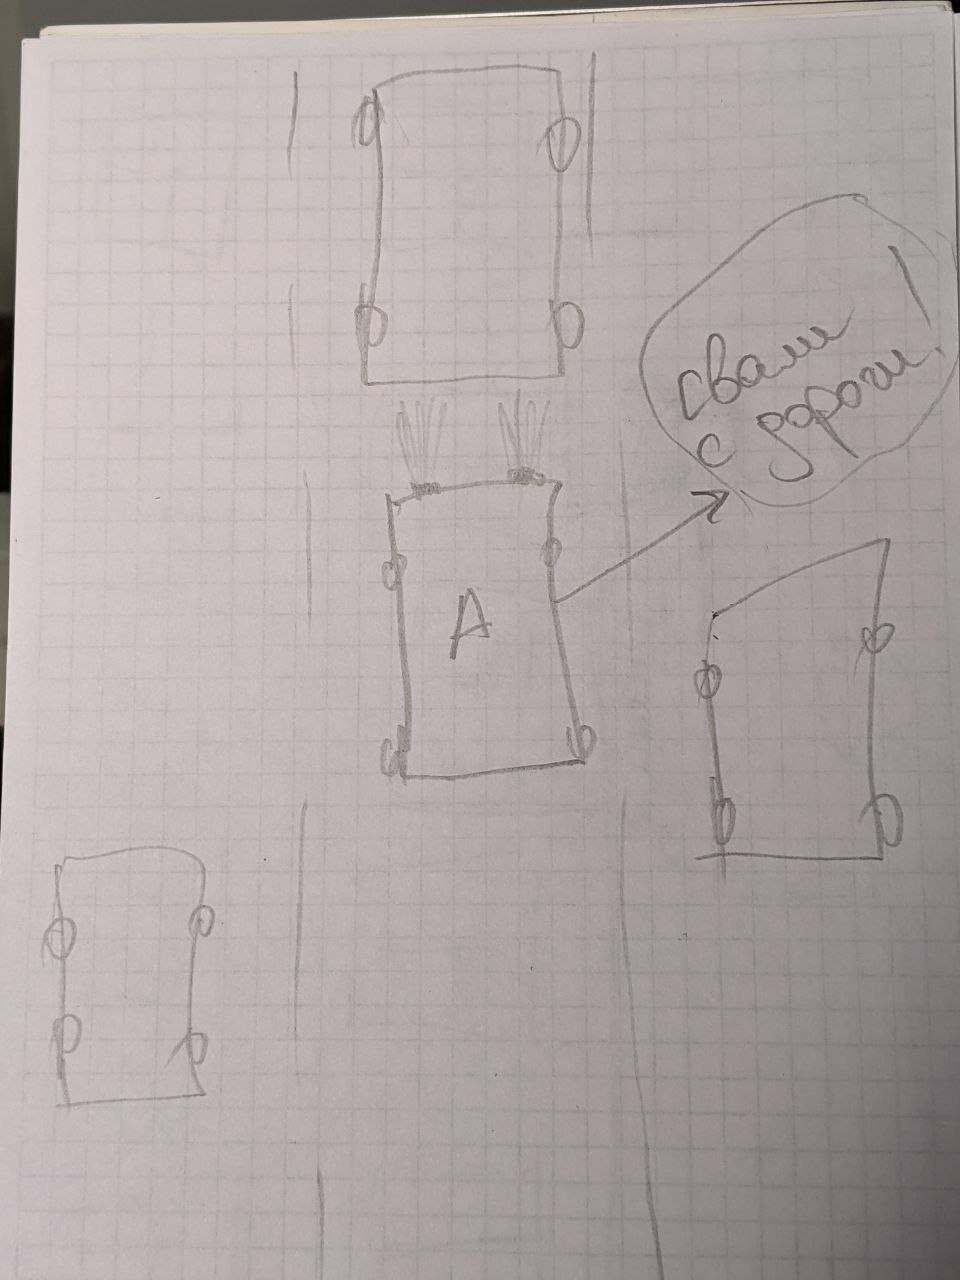 свали
с дороги!
А